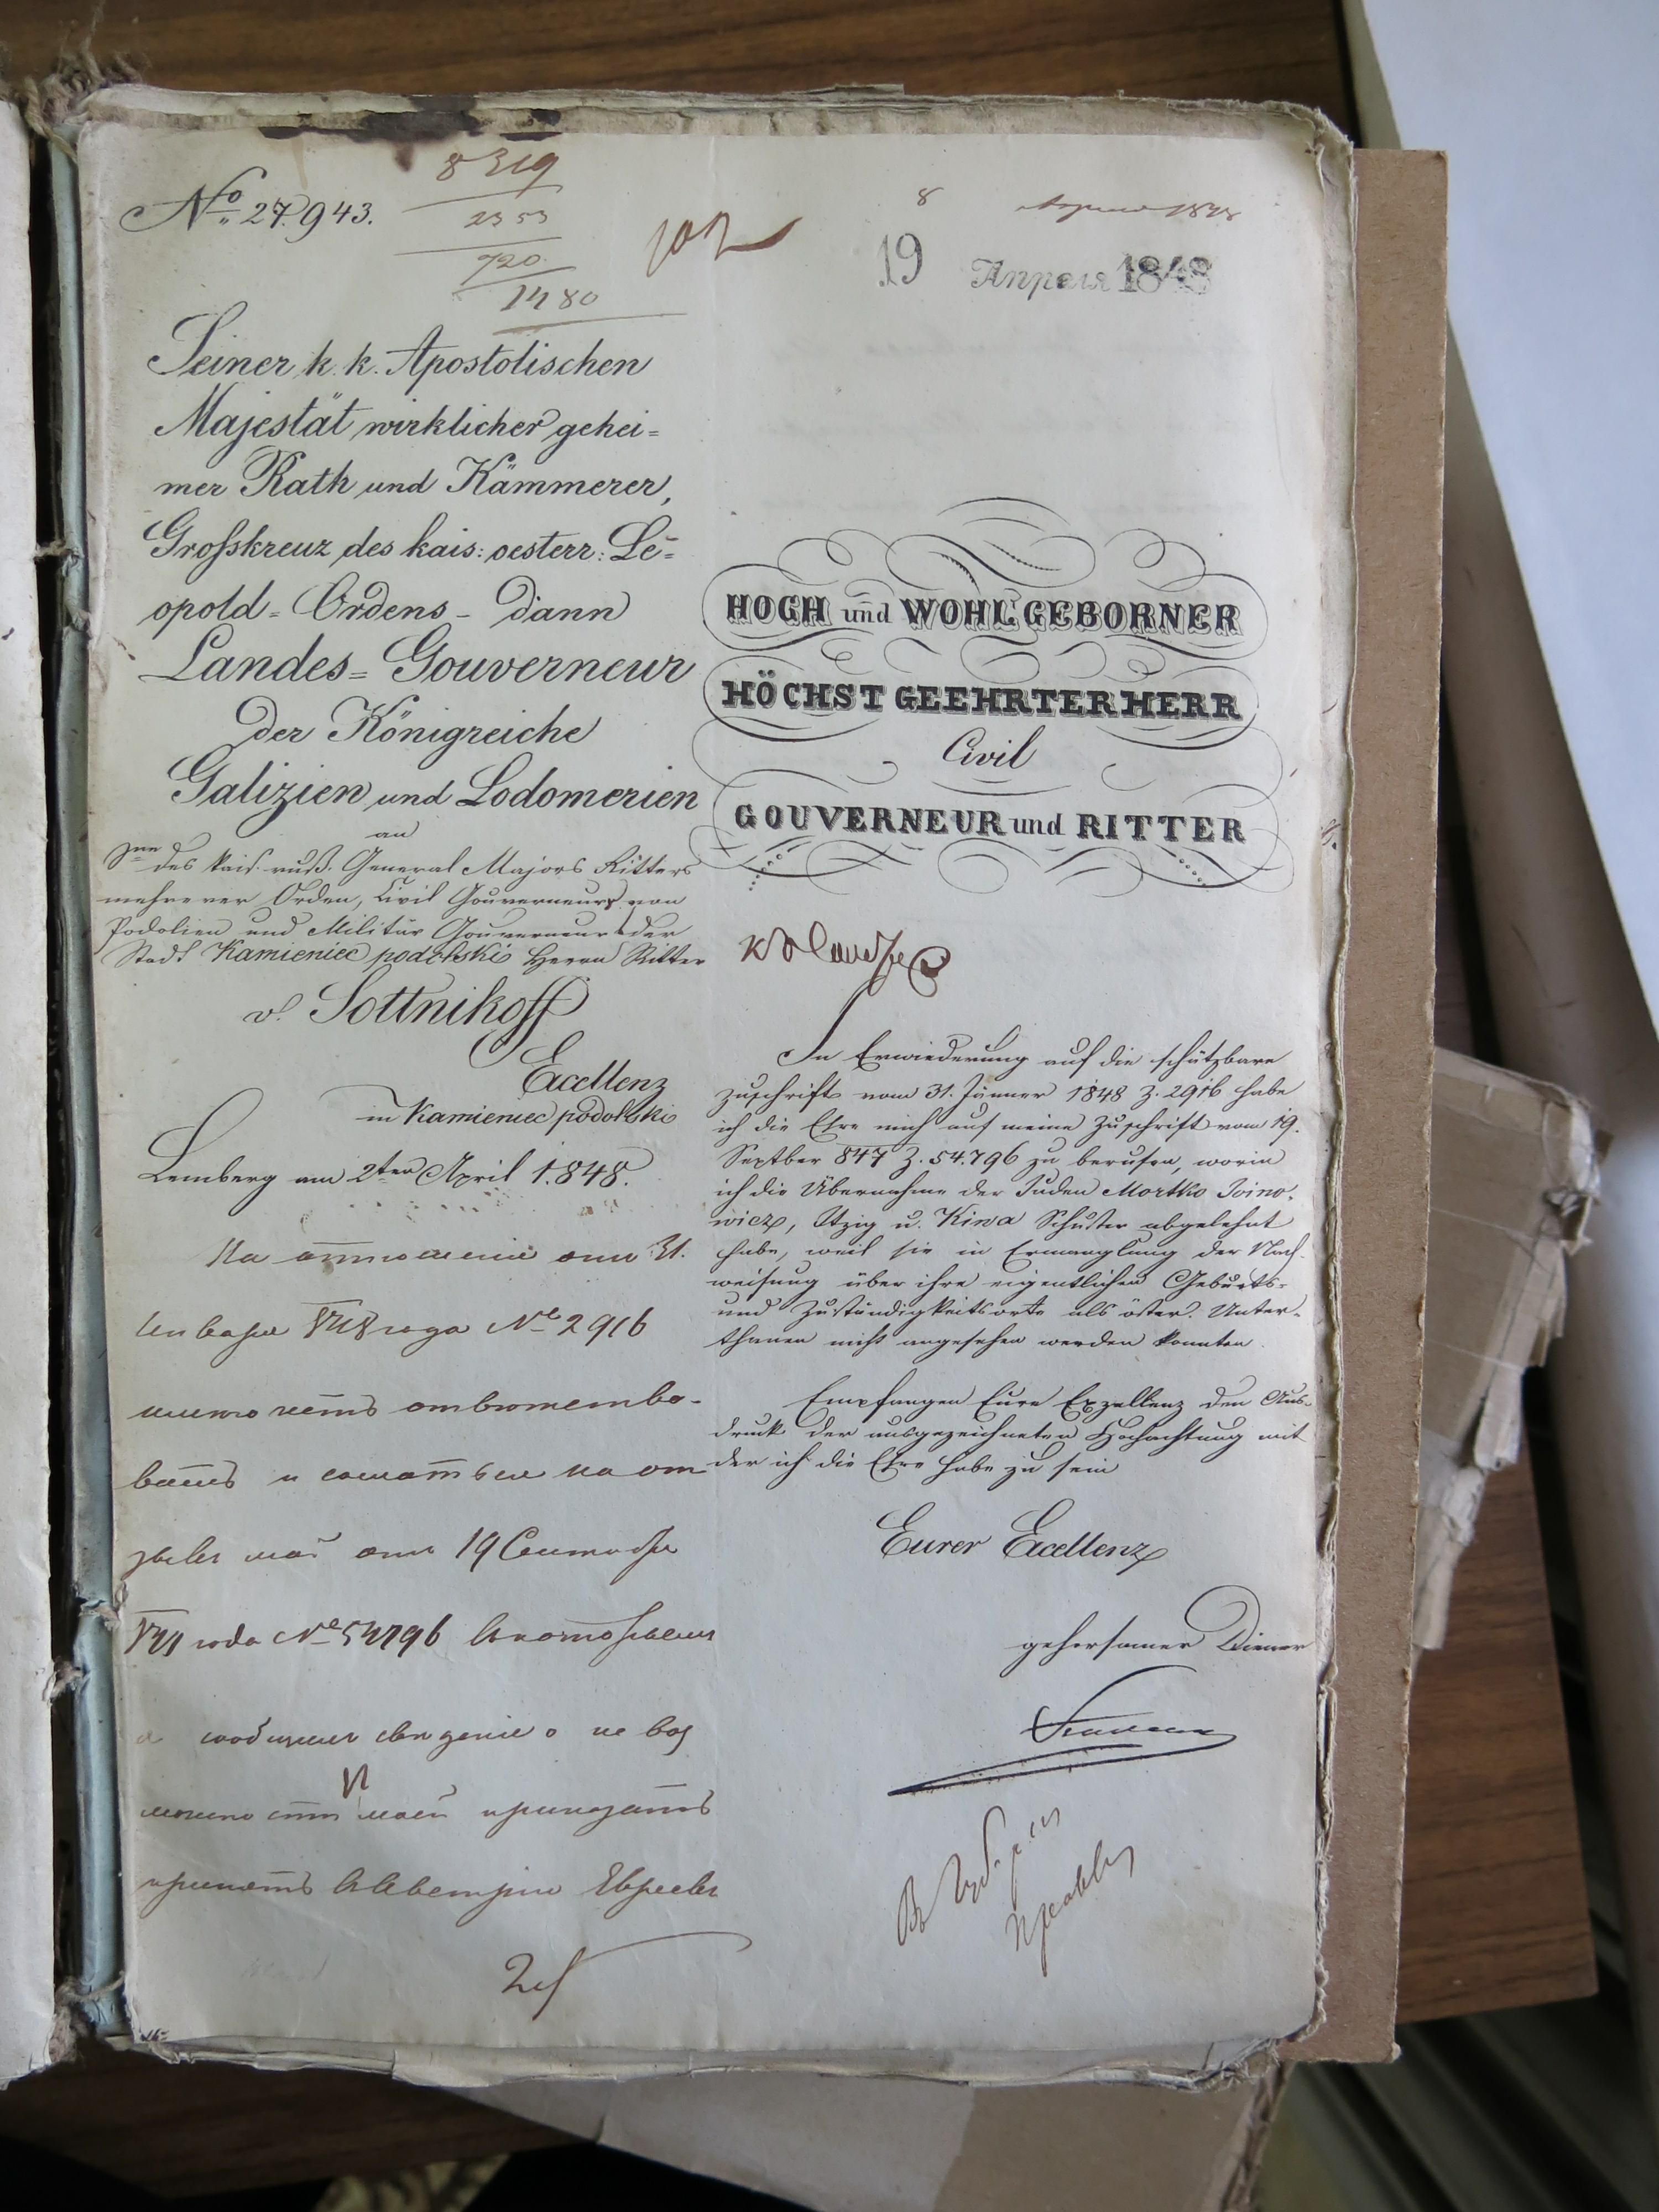 No 27.943.
8319
2353
720
1480
102
8 Априля 1848
19 Апреля 1848
Seiner k. k. Apostolischen
Majestät wirklicher gehei=
mer Rath und Kämmerer,
Grosskreuz des kais: oesterr: Le=
opold= Ordens – dann
Landes= Gouverneur
der Königreiche
Galizien und Lodomerien
an
des kais. russ. General Majors Ritters
mehrerer Orden, Civil Gouverneurs von
Podolien und Militär Gouverneur der
Stadt Kamieniec podolski Herrn Ritter
v. Sottnikoff
Excellenz
in Kamieniec podolski
Lemberg am 2ten April 1848.
На отношение отъ 31.
Января 1848 года № 2916
имею честь ответство-
вать и на от
зывъ мой отъ 19 Сентября
года № 54796 въ которымъ
я сообщилъ сведение о не воз
можности моей
принять въ Австрию Евреевъ
HOCH und WOHLGEBORNER
HÖCHST GEEHRTER HERR
Civil
GOUVERNEUR und RITTER
In Erwiederung auf die schätzbare
Zuschrift vom 31. Jänner 1848 Z. 2916 habe
ich die Ehre mich auf meine Zuschrift vom 19.
Septber 847 Z. 54.796 zu berufen, worin
ich die Übernahme der Juden Mortko Ivino-
wicz, Itzig u. Kiwa Schuster abgelehnt
habe, weil sie in Ermanglung der Nach-
weisung über ihre eigentlichen Geburts-
und Zuständigkeitsorte als öster. Unter-
thanen nicht angesehen werden konnten.
Empfangen Eure Exzellenz den Aus-
druck der ausgezeichneten Hochachtung mit
der ich die Ehre habe zu sein
Eurer Excellenz
gehorsamer Diener